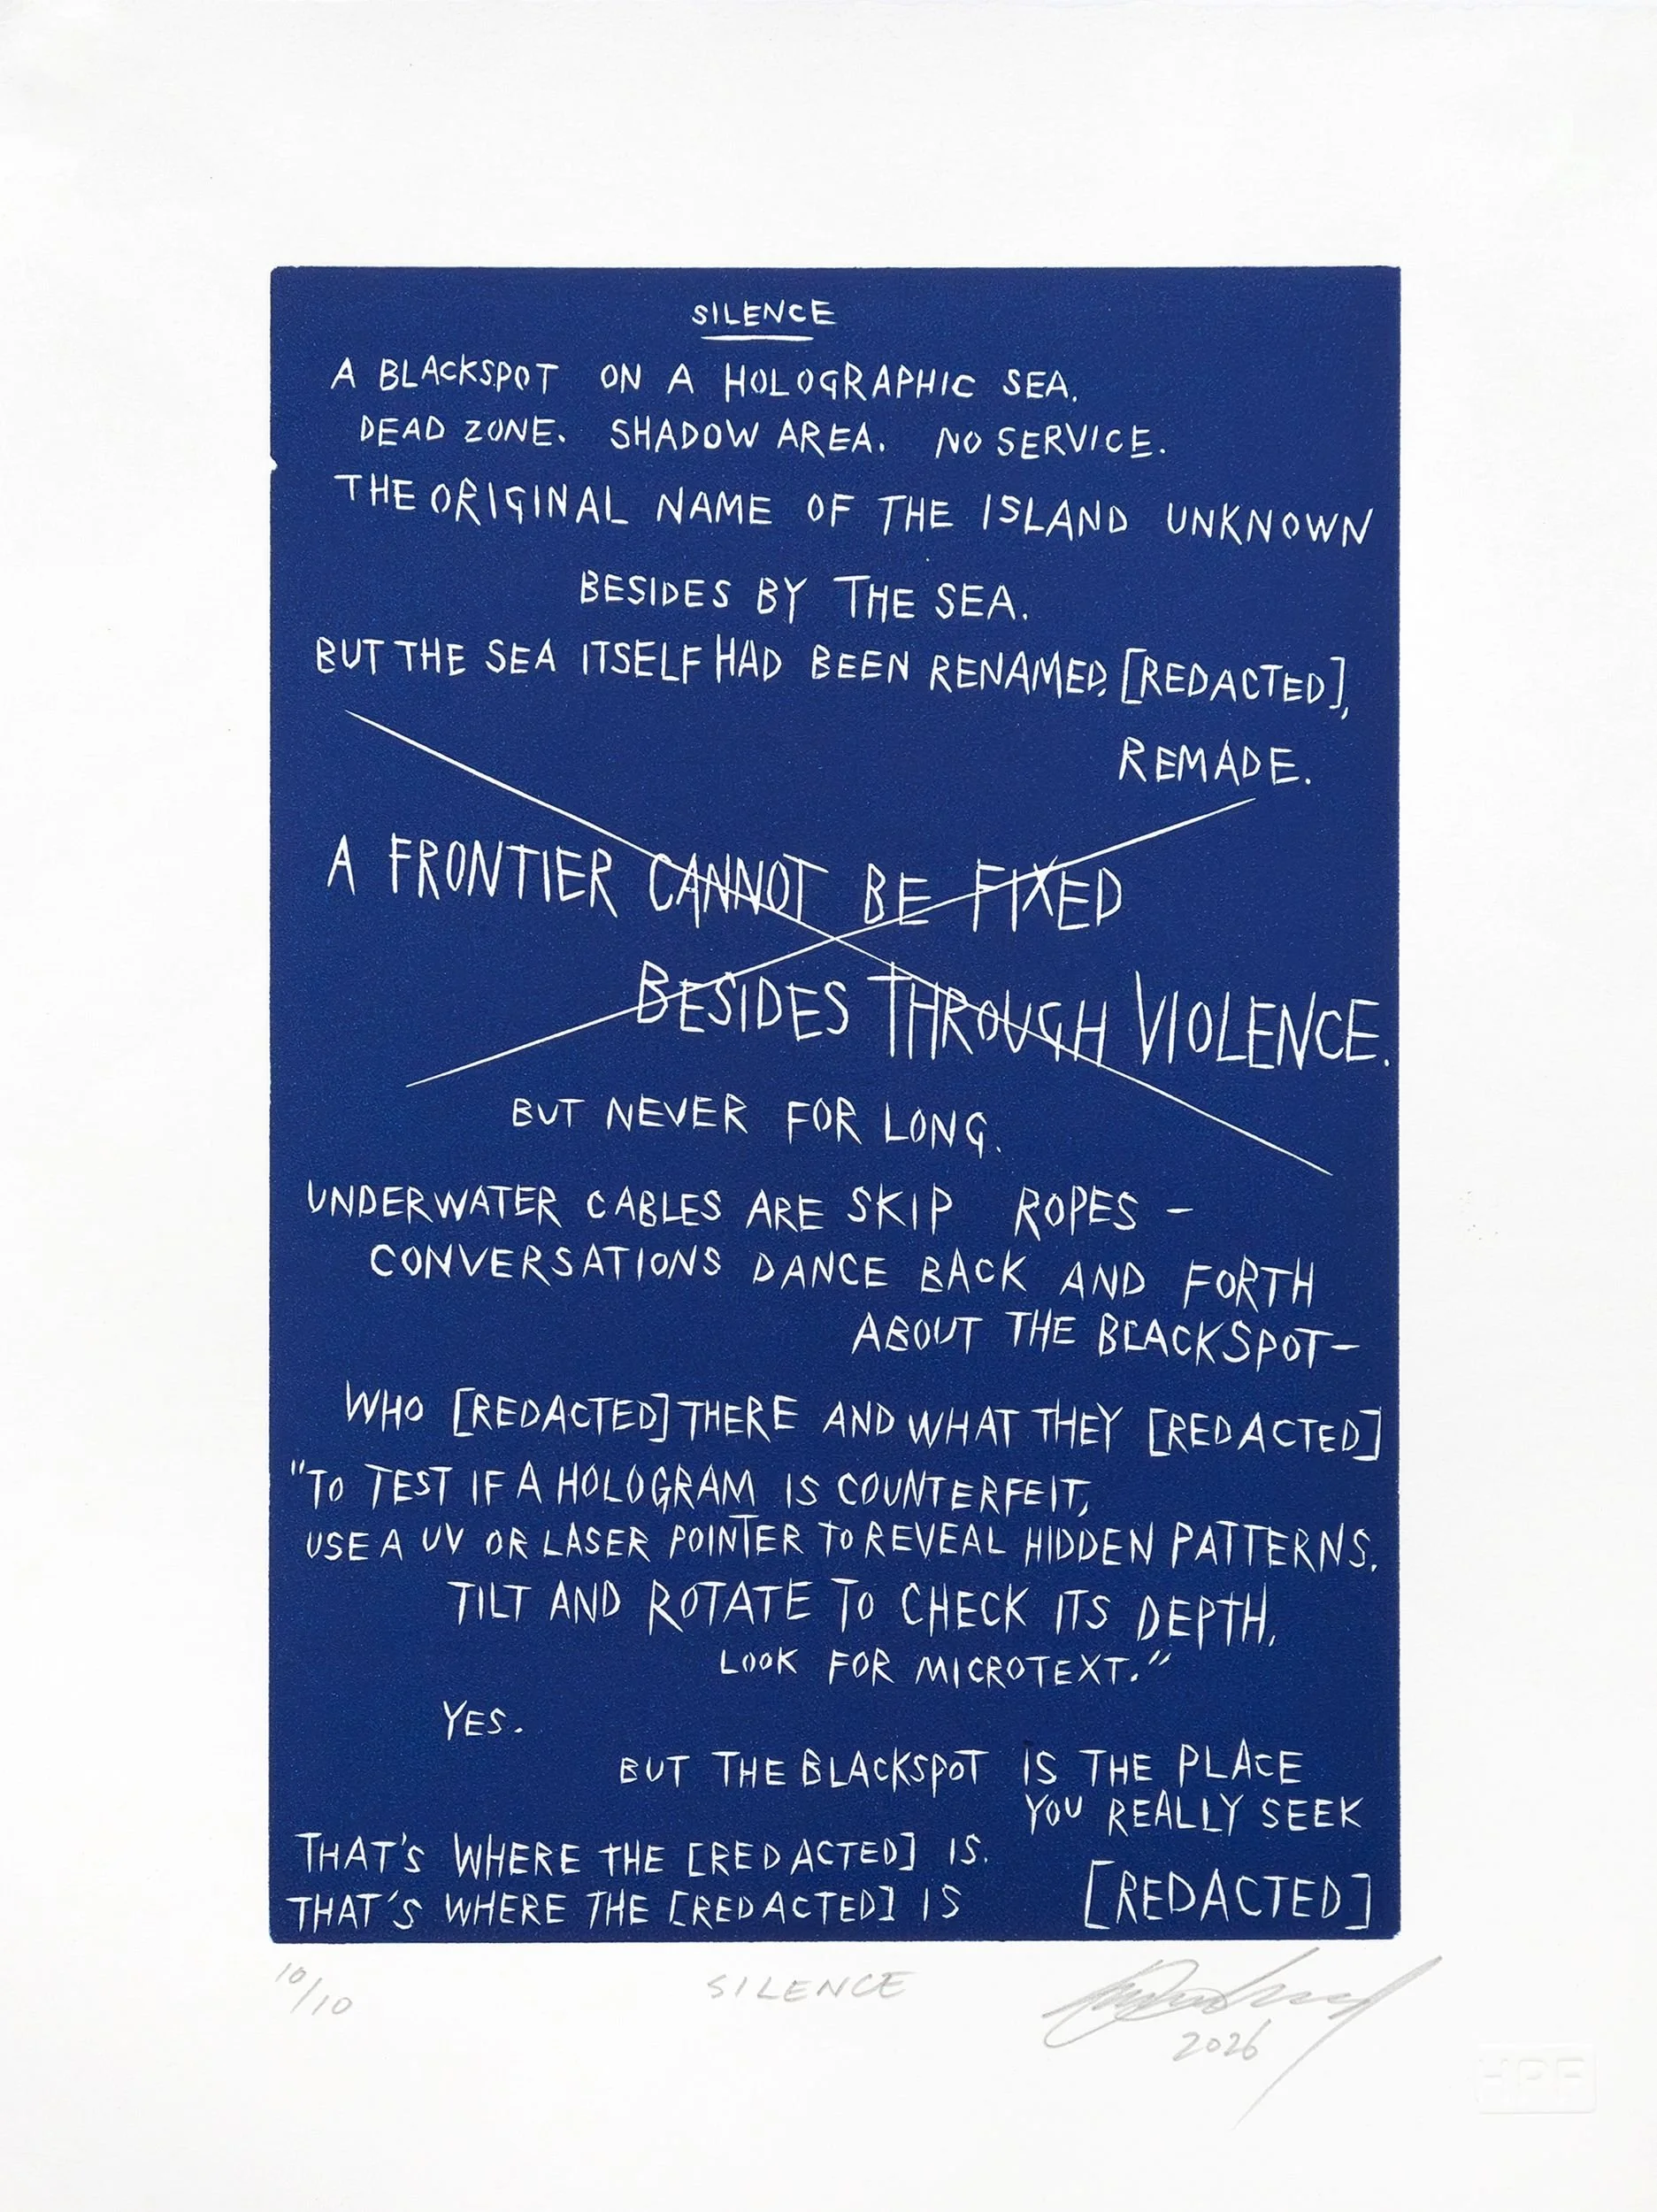 SILENCE
A BLACKSPOT ON A HOLOGRAPHIC SEA.
DEAD ZONE. SHADOW AREA. NO SERVICE.
THE ORIGINAL NAME OF THE ISLAND UNKNOWN
BESIDES BY THE SEA.
BUT THE SEA ITSELF HAD BEEN RENAMED, [REDACTED],
REMADE.
A FRONTIER CANNOT BE FIXED
BESIDES THROUGH VIOLENCE.
BUT NEVER FOR LONG.
UNDERWATER CABLES ARE SKIP ROPES –
CONVERSATIONS DANCE BACK AND FORTH
ABOUT THE BLACKSPOT–
WHO [REDACTED] THERE AND WHAT THEY [REDACTED]
"TO TEST IF A HOLOGRAM IS COUNTERFEIT,
USE A UV OR LASER POINTER TO REVEAL HIDDEN PATTERNS.
TILT AND ROTATE TO CHECK ITS DEPTH,
LOOK FOR MICROTEXT."
YES.
BUT THE BLACKSPOT IS THE PLACE
YOU REALLY SEEK
THAT'S WHERE THE [REDACTED] IS.
THAT'S WHERE THE [REDACTED] IS [REDACTED]
10/10 SILENCE
2026